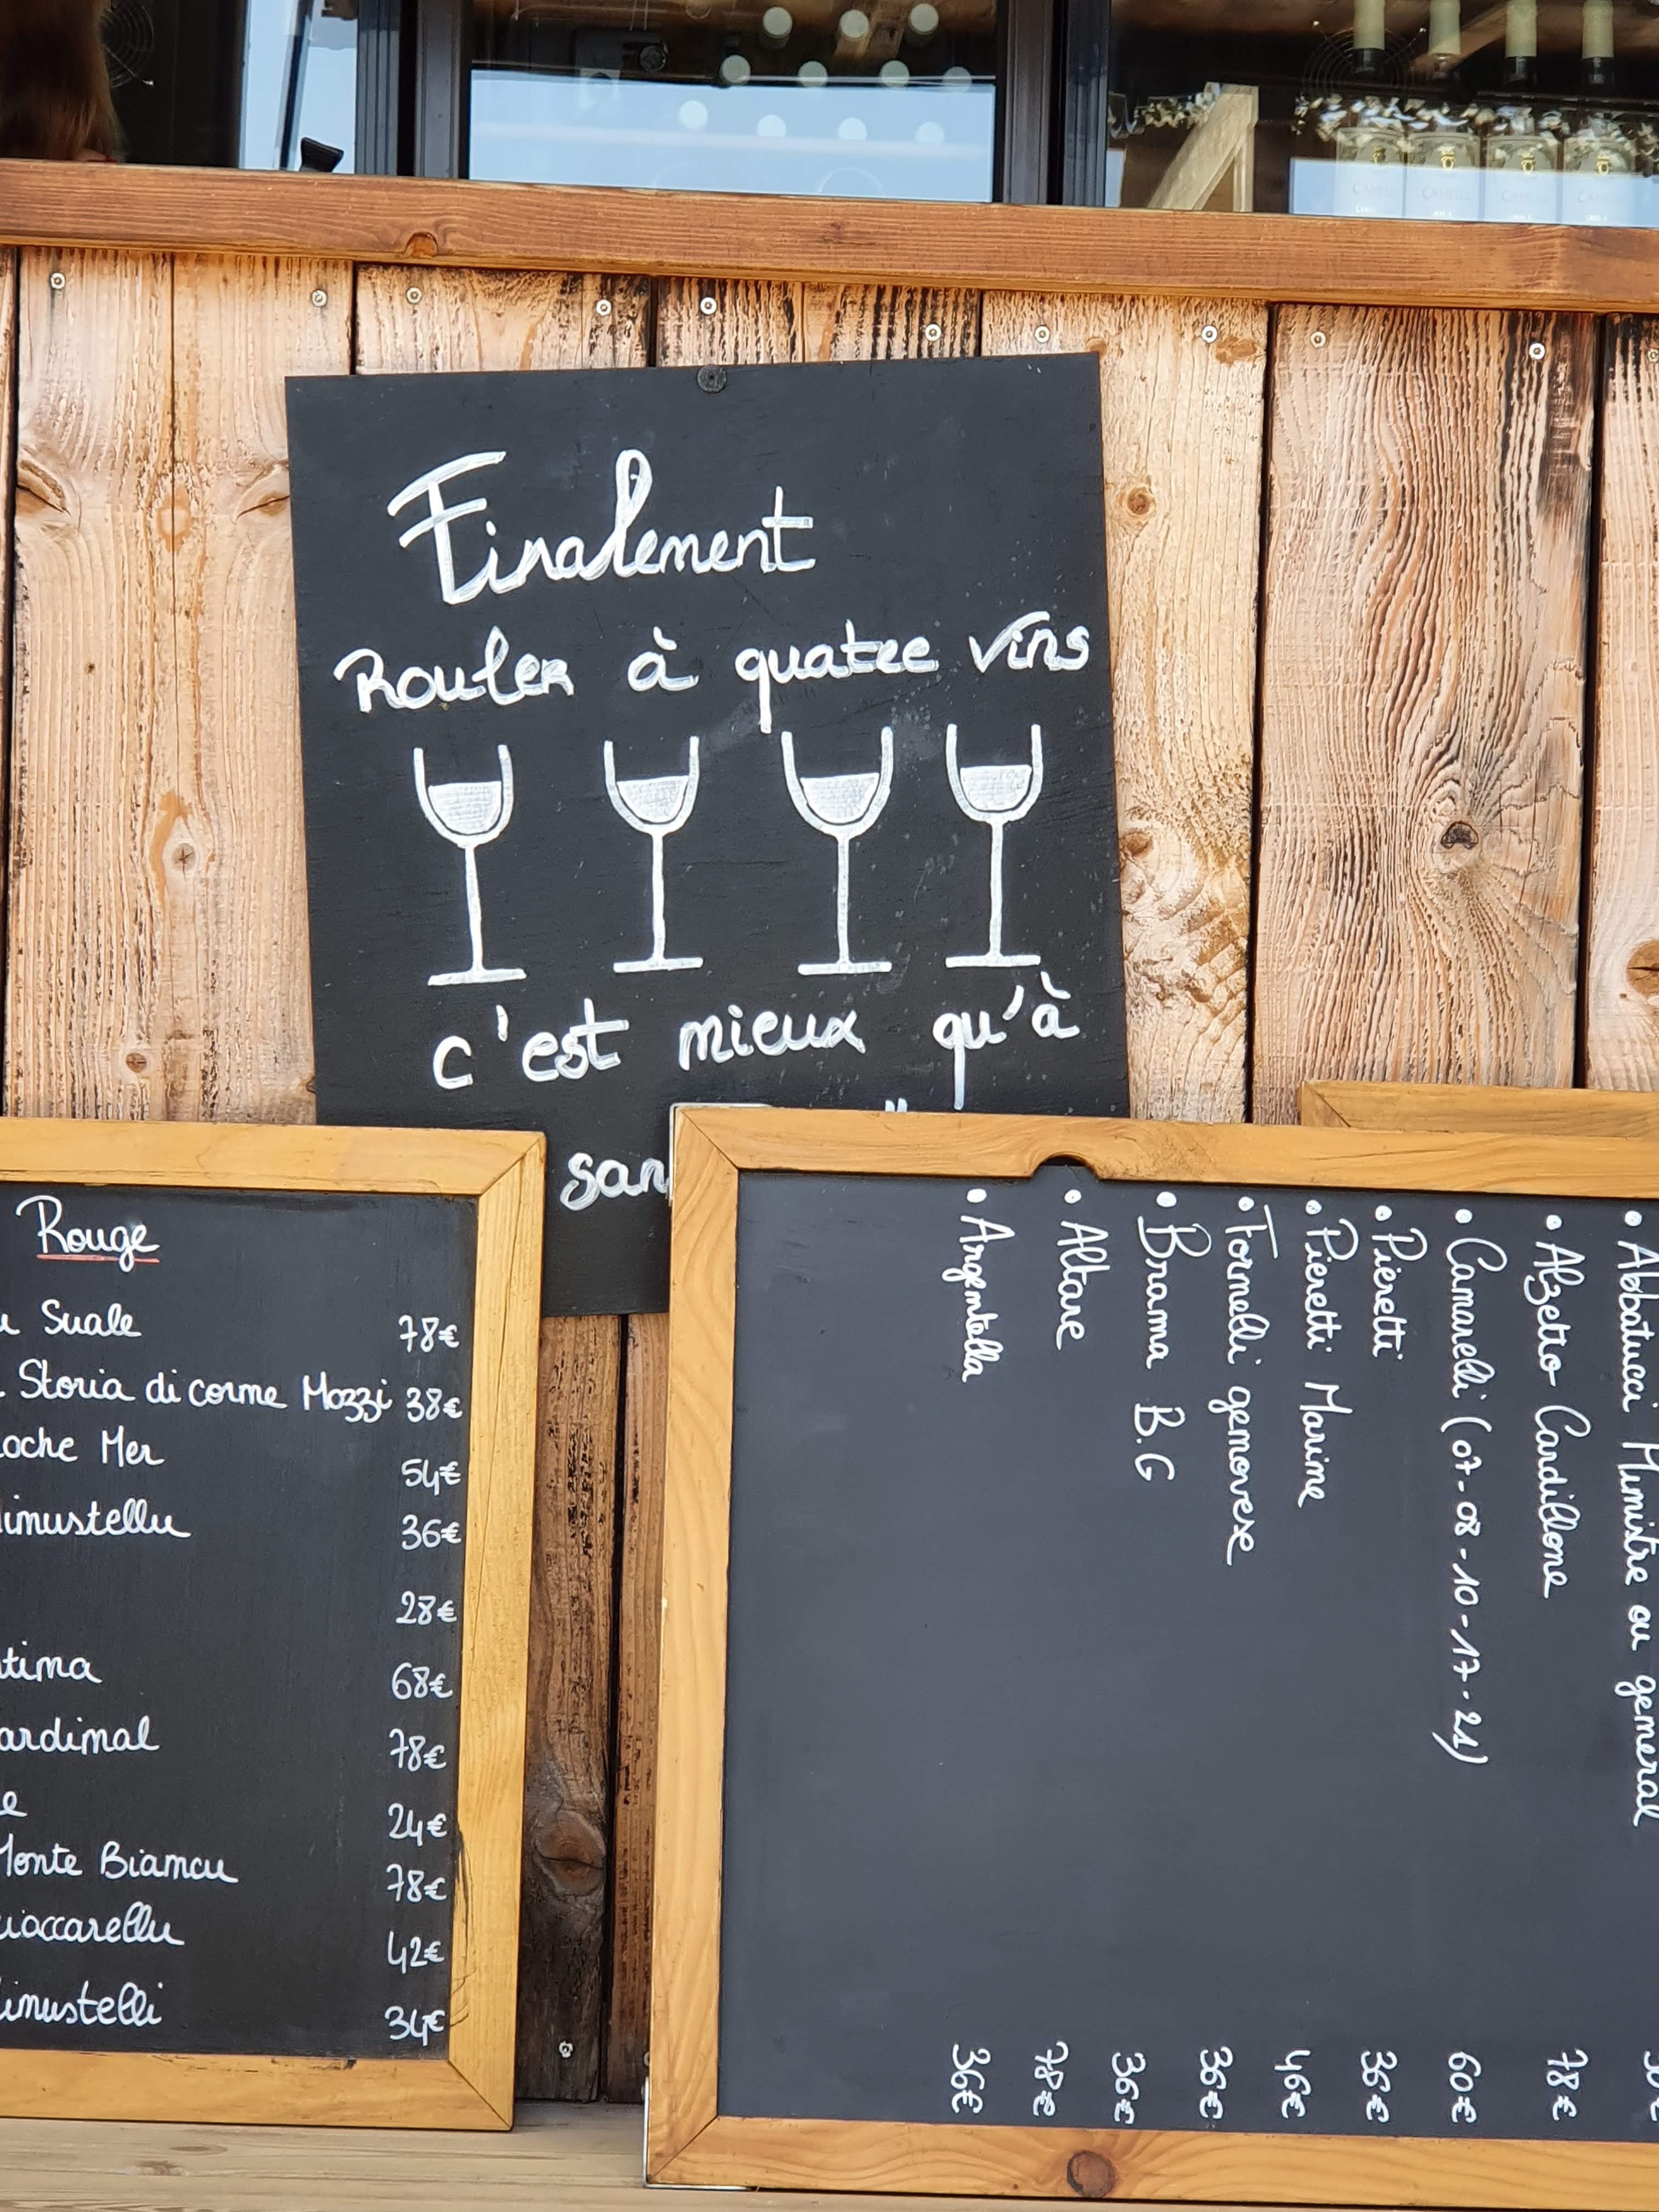 Finalement
Rouler à quatre vins
c'est mieux qu'à
Rouge
Suale 78€
Storia di corme Mozzi 38€
Mer 54€
36€
28€
68€
78€
24€
Biancu 78€
42€
34€
• Abbatucci Ministre ou general
• Alzetto Cardillone 78€
• Camarelli (07-08-10-17-21) 60€
• Pieretti 36€
• Pieretti Marine 46€
• Tornelli genovese 36€
• Brama B.G 36€
• Altare 78€
• Argentella 36€